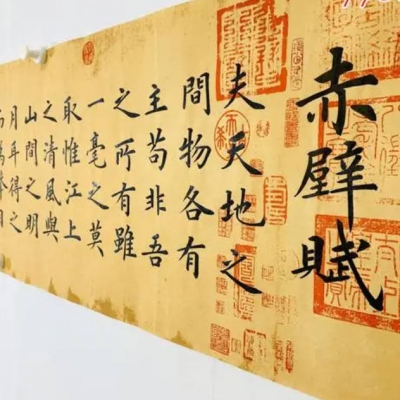 赤壁賦
夫天地之
間物各有
主苟非吾
之所有雖
一毫之莫
取惟江上
之清風與
山間之明
月耳得之